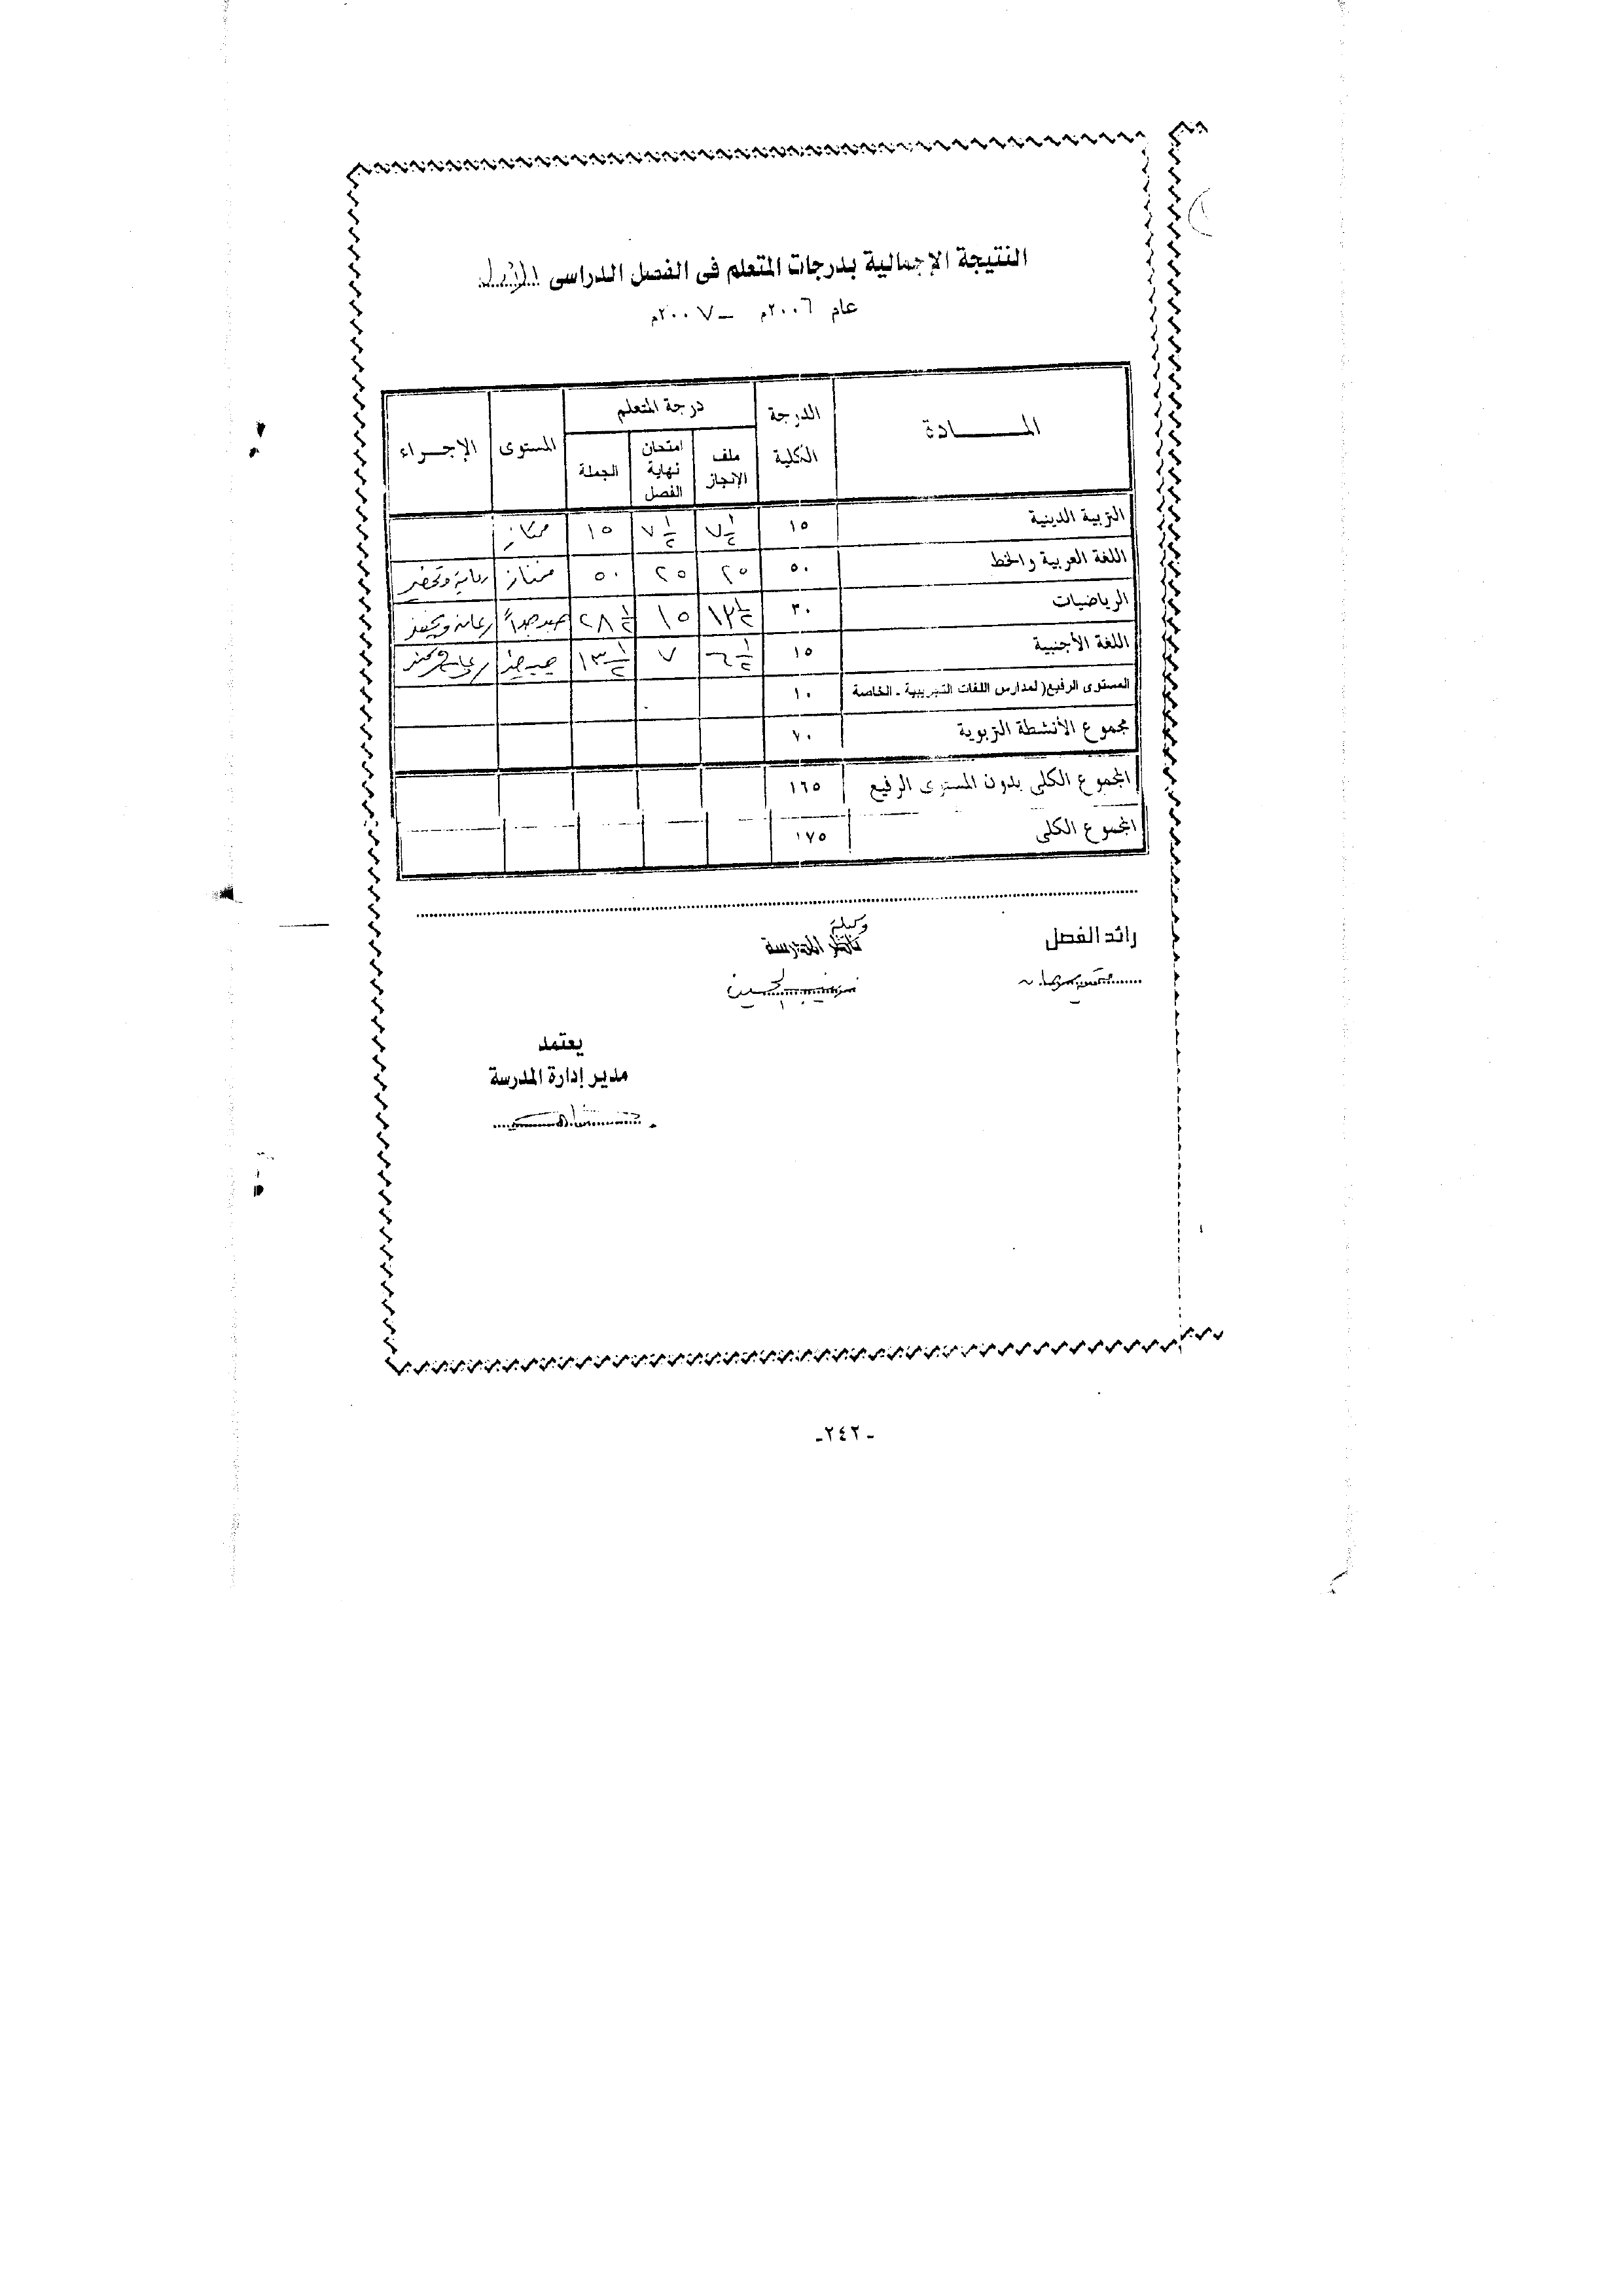 النتيجة الإجمالية بدرجات المتعلم فى الفصل الدراسى الأول
عام ٢٠٠٦م – ٢٠٠٧م
المـــــــادة الدرجة الكلية درجة المتعلم المستوى الإجـــراء
ملف الإنجاز امتحان نهاية الفصل الجملة
التربية الدينية ١٥ ٧ ١/٢ ٧ ١/٢ ١٥ ممتاز
اللغة العربية والخط ٥٠ ٢٥ ٢٥ ٥٠ ممتاز
الرياضيات ٣٠ ١٣ ١/٢ ١٥ ٢٨ ١/٢ جيد جداً
اللغة الأجنبية ١٥ ٦ ١/٢ ٧ ١٣ ١/٢
المستوى الرفيع( لمدارس اللغات التجريبية - الخاصة ١٠
مجموع الأنشطة التربوية ٧٠
المجموع الكلى بدون المستوى الرفيع ١٦٥
المجموع الكلى ١٧٥
رائد الفصل
وكيلة
ناظر المدرسة
يعتمد
مدير إدارة المدرسة
-٢٤٢-